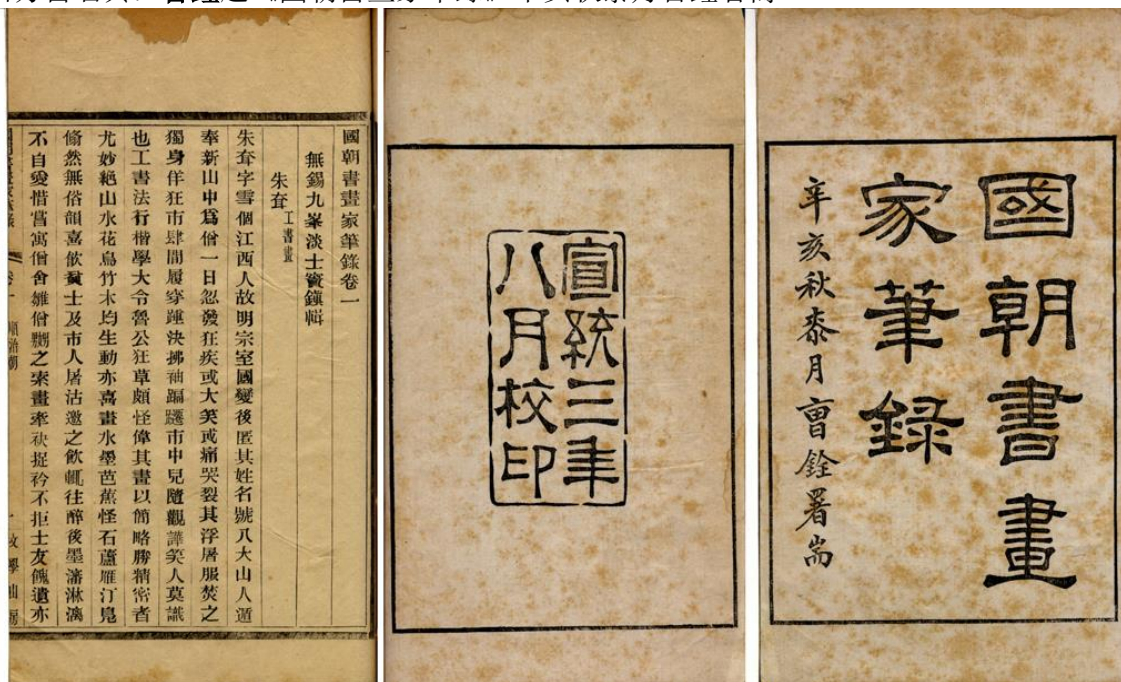 國朝書畫
家筆録
辛亥秋桼月曺銓署耑
宣統三年
八月校印
國朝書畫家筆錄卷一
無錫九峯淡士竇鎮輯
朱耷 工書畫
朱耷字雪個江西人故明宗室國變後匿其姓名號八大山人遁
奉新山中爲僧一日忽發狂疾或大笑或痛哭裂其浮屠服焚之
獨身佯狂市肆間履穿踵決拂袖蹁躚市中兒隨觀譁笑人莫識
也工書法行楷學大令魯公狂草頗怪偉其畫以簡略勝精密者
尤妙絕山水花鳥竹木均生動亦喜畫水墨芭蕉怪石蘆雁汀鳧
翛然無俗韻喜飲貧士及市人屠沽邀之飲輒往醉後墨瀋淋漓
不自愛惜嘗寓僧舍雛僧嬲之索畫牽袂捉衿不拒士友餽遺亦
卷一 順治朝 一